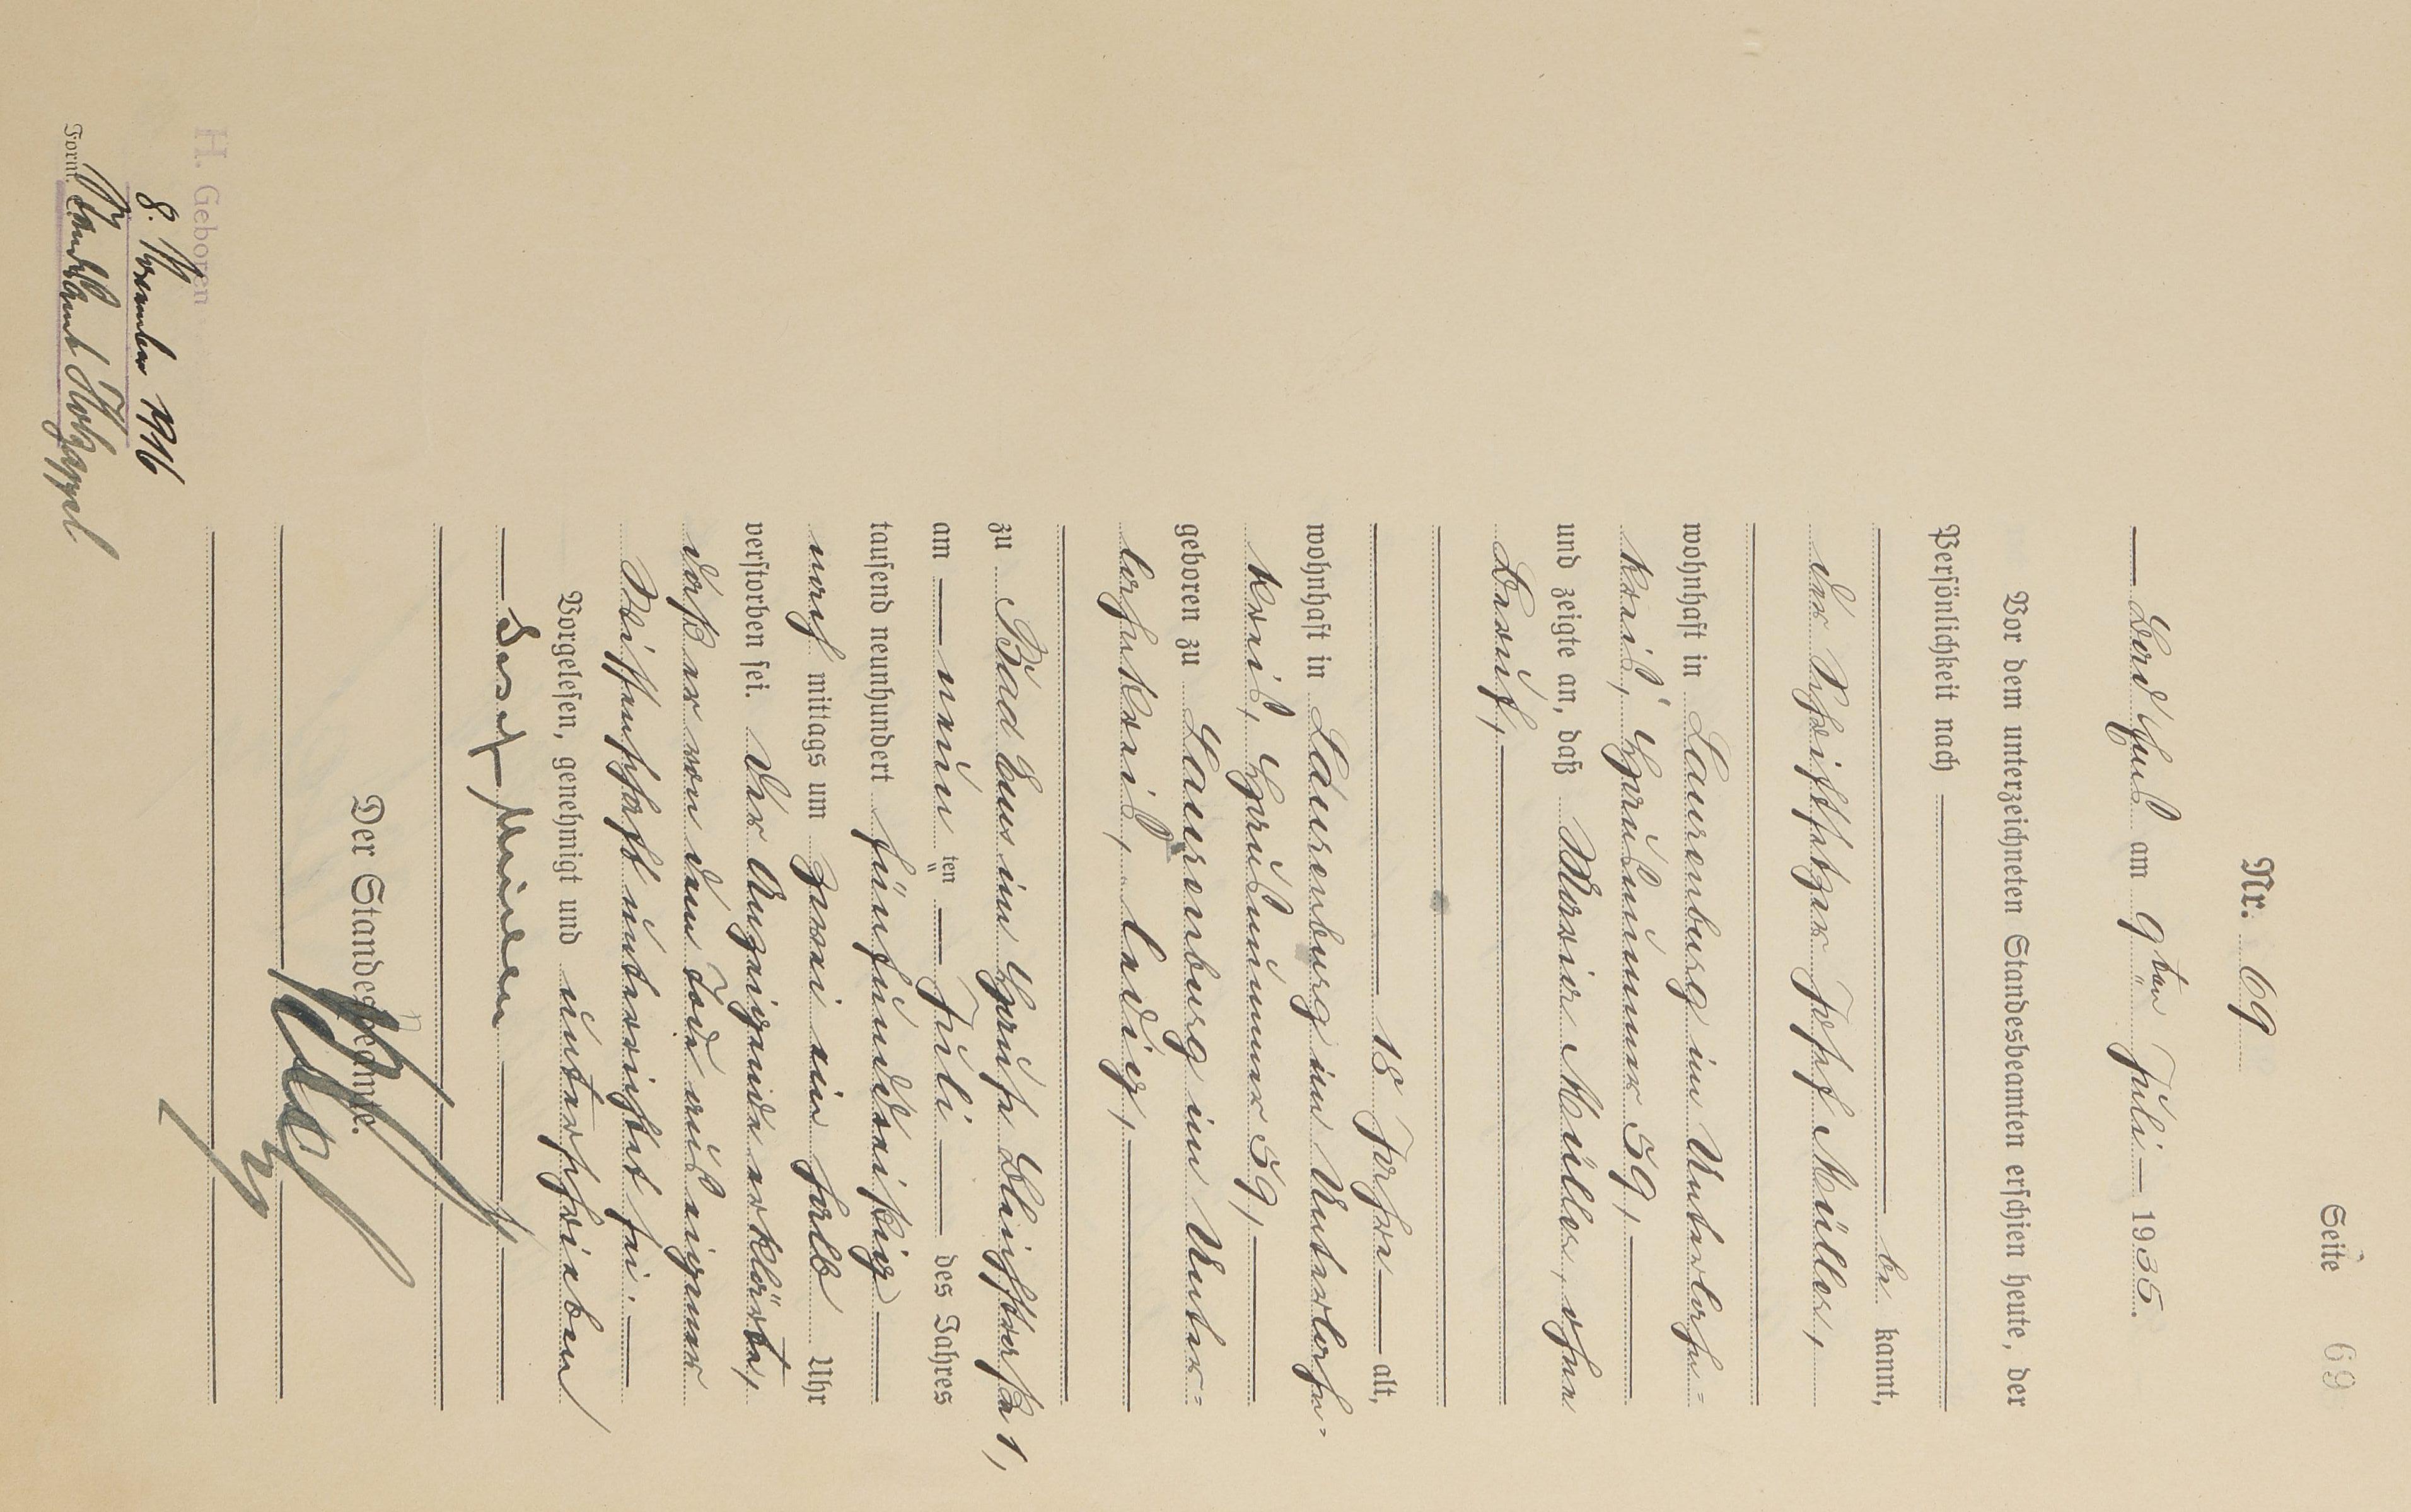 Seite 69
Nr. 69
Bad Ems am 9ten Juli 1935.
Vor dem unterzeichneten Standesbeamten erschien heute, der
Persönlichkeit nach
be kannt,
der Josef Müller,
wohnhaft in Laurenburg im Unterlahn-
kreis, Hausnummer 59,
und zeigte an, daß Maria Müller, ohne
Beruf,
18 Jahre alt,
wohnhaft in Laurenburg im Unterlahn-
kreis, Hausnummer 59,
geboren zu Laurenburg im Unter-
lahnkreis, ledig,
zu Bad Ems im Hause Bleichstraße 1,
am neun ten Juli des Jahres
tausend neunhundert fünfunddreißig
nach mittags um zwei ein halb Uhr
verstorben sei. Der Anzeigende erklärte,
daß er von dem Tode aus eigener
Wissenschaft unterrichtet sei.
Vorgelesen, genehmigt und unterschrieben
Josef Müller
Der Standesbeamte.
H. Geboren
8. November 1916
Standesamt Holzappel
Form.